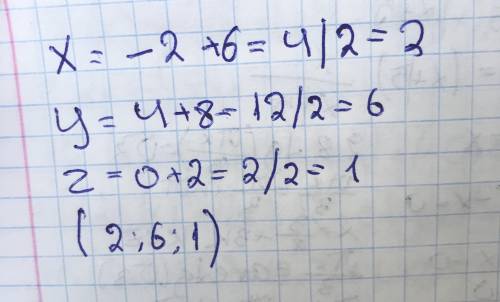 x = -2 +6 = 4/2 = 2
y = 4+8 = 12/2 = 6
z = 0+2 = 2/2 = 1
(2;6;1)